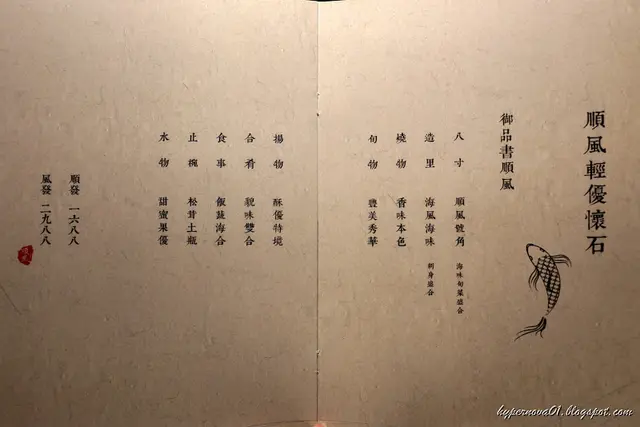 順風輕優懷石
御品書順風
八寸 順風號角 海味旬菜盛合
造里 海風海味 刺身盛合
燒物 香味本色
旬物 豐美秀華
揚物 酥優特境
合肴 貌味雙合
食事 飯蔬海合
止椀 松茸土瓶
水物 甜蜜果優
順發 一六八八
風發 二九八八
hypernova01.blogspot.com